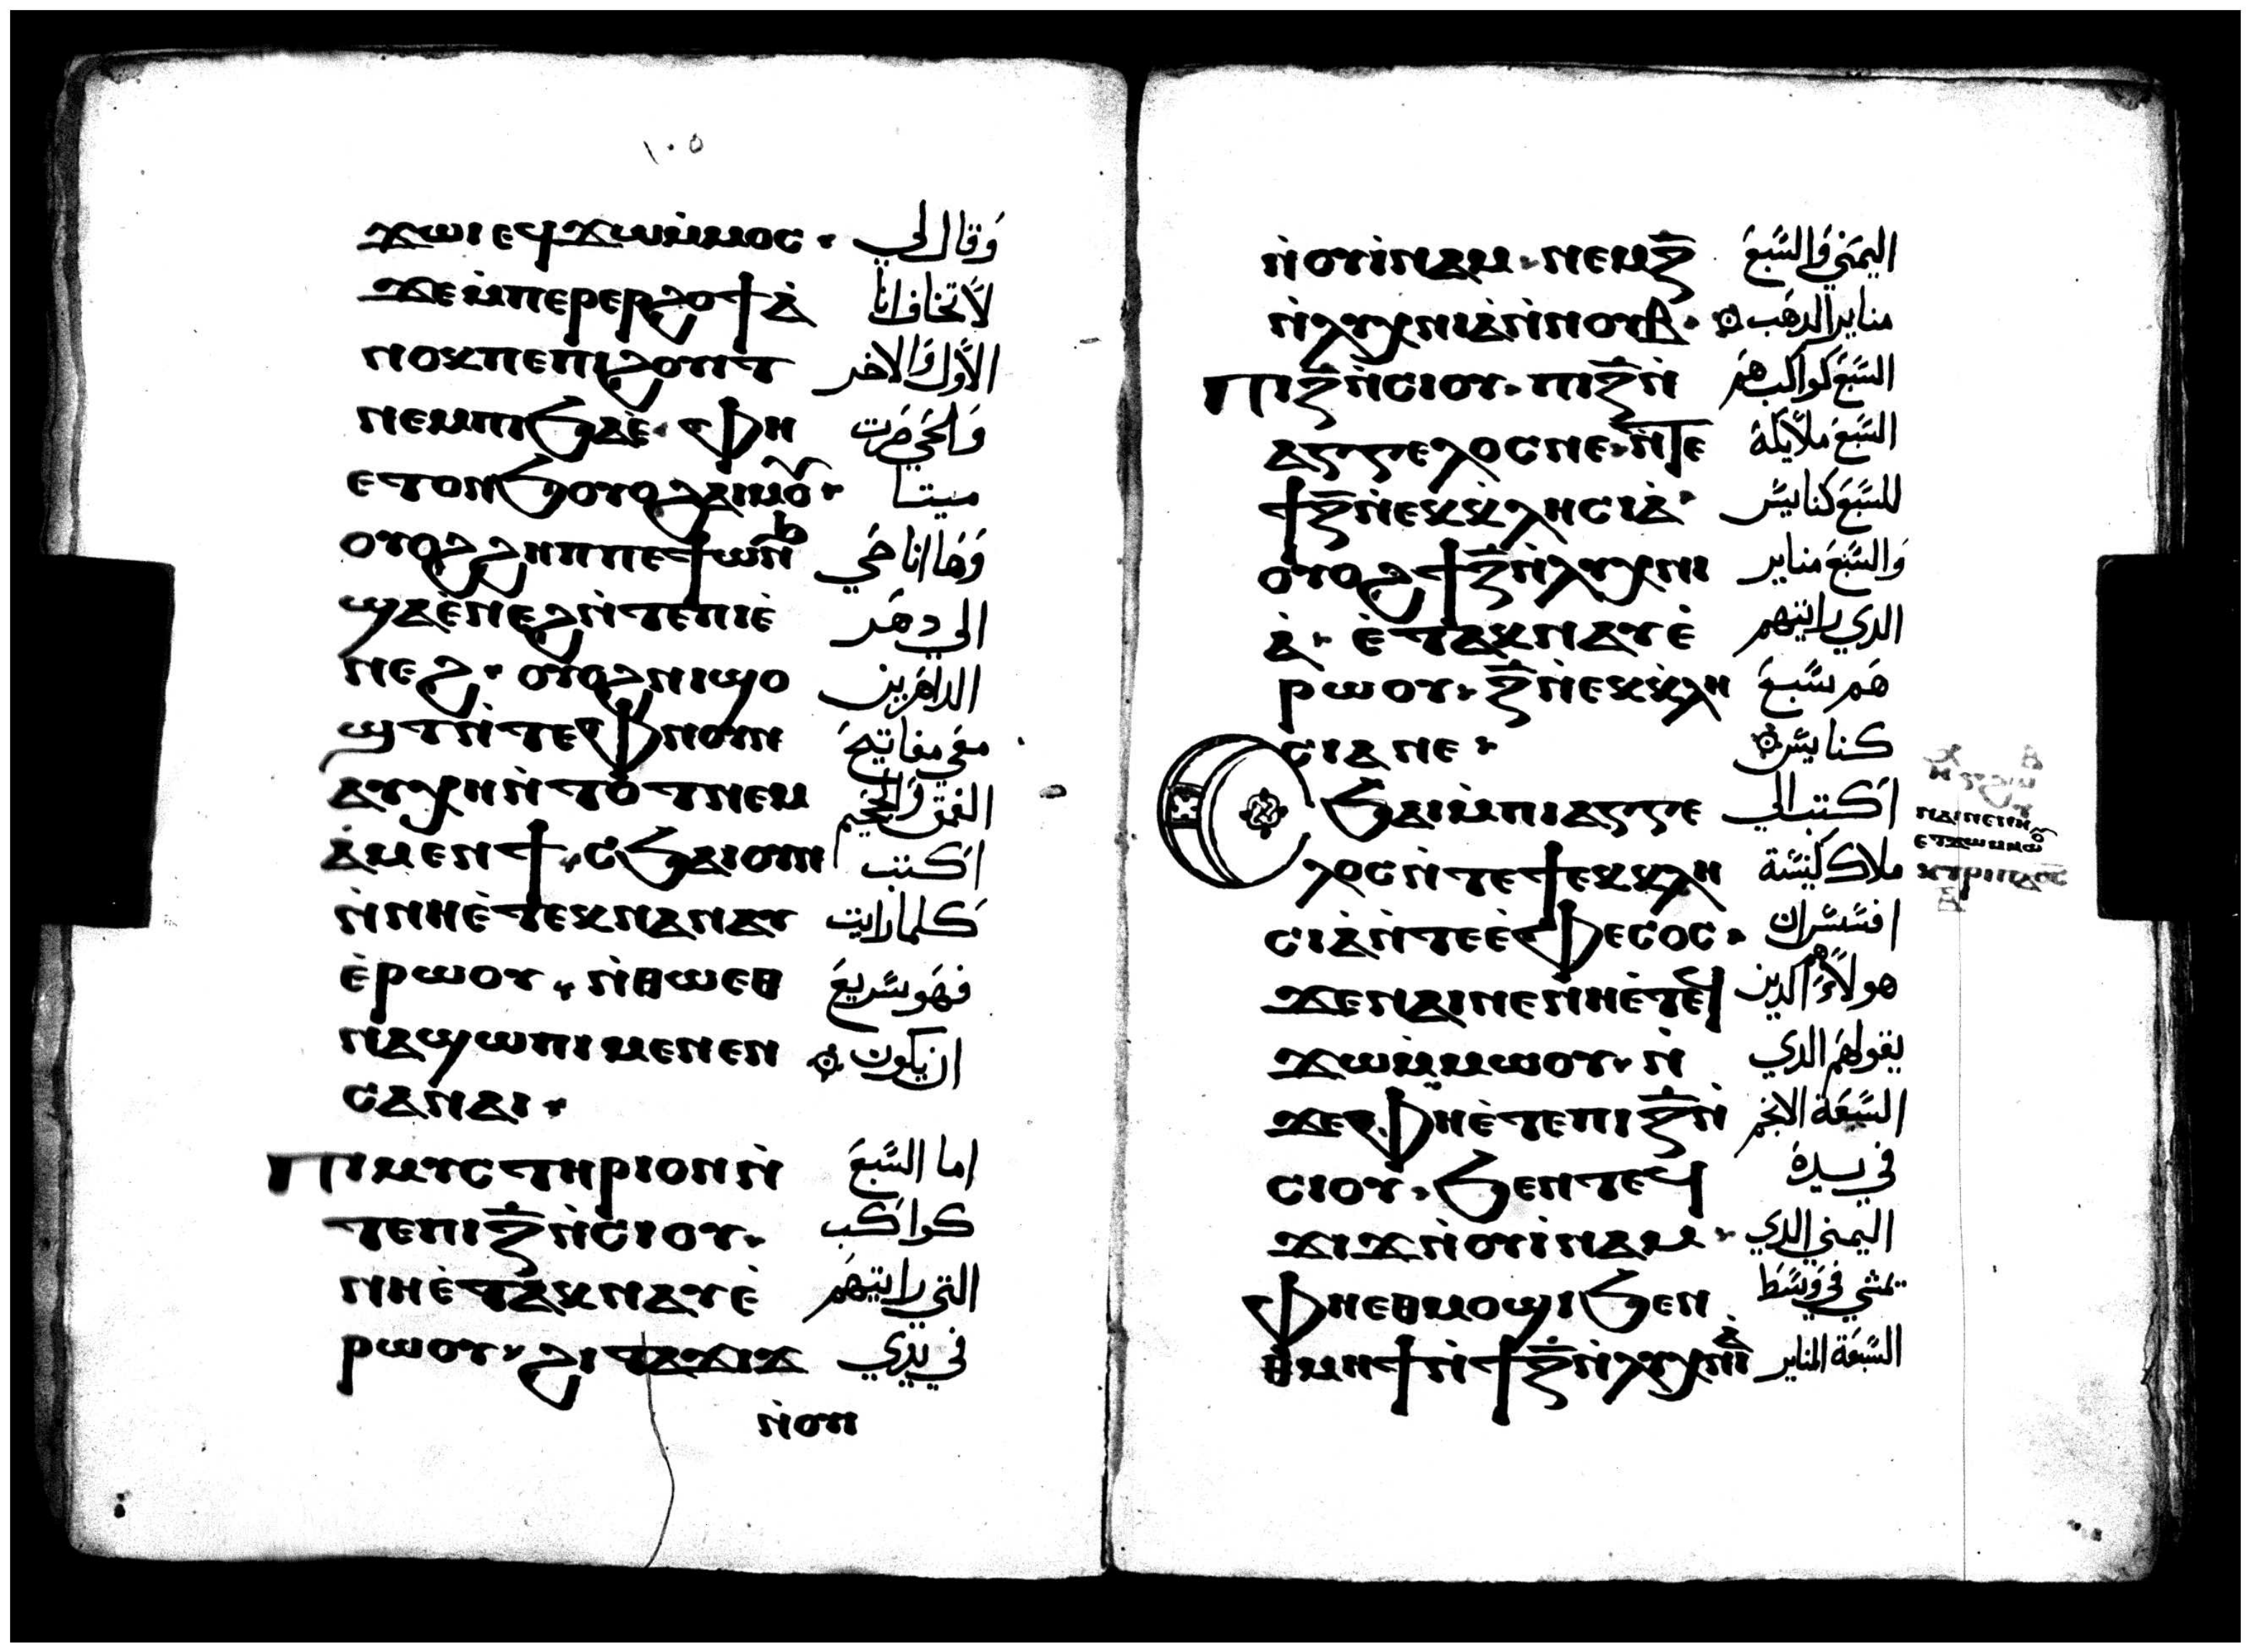 ١٠٥
ϫⲱⲓ ⲉϥϫⲱ ⲙ̇ⲙⲟⲥ وَقال لي
ϫⲉ ⲙ̇ⲡⲉⲣⲉⲣϩⲟϯ ⲁ̇ لا تخاف انا
ⲛⲟⲕ ⲡⲉ ⲡⲓϩⲟⲩⲓⲧ الاول وَالاخر
ⲛⲉⲙ ⲡⲓϧⲁⲉ̇ ⲫⲏ وَالحي صَرت
ⲉⲧⲟⲛϧ ⲟⲩⲟϩ ⲁⲓⲙⲟⲩ ميتا
ⲟⲩⲟϩ ϩⲏⲡⲡⲉ ϯⲱⲛϧ وَهَا انا حَي
ϣⲁ ⲉ̇ⲛⲉϩ ⲛ̇ⲧⲉ ⲡⲓⲉ̇ الي دهَر
ⲛⲉϩ ⲟⲩⲟϩ ⲛⲓϣⲟ الداهَرين
ϣⲧ ⲛ̇ⲧⲉ ⲫⲛⲟⲩⲛ مَعَي مفاتيح
ⲁⲩⲭⲏ ⲛ̇ⲧⲟⲧ ⲛⲉⲙ الغمق وَالجحَيم
ⲁ̇ⲙⲉⲛϯ ⲥ̇ϧⲁⲓ ⲟⲩⲛ اكتب
ⲛ̇ⲛⲏⲉ̇ⲧⲉⲕⲛⲁⲛⲁⲩ كلما رايت
ⲉ̇ⲣⲱⲟⲩ ⲛ̇ⲑⲱⲉⲑ فهَو سَريعَ
ⲛⲁϣⲱⲡⲓ ⲙⲉⲛⲉⲛ ان يكون
ⲥⲁ ⲛⲁⲓ
ⲡⲓⲙⲩⲥⲧⲏⲣⲓⲟⲛ ⲛ̇ اما السَّبعَ
ⲧⲉ ⲡⲓⲍ̅ ⲛ̇ⲥⲓⲟⲩ كواكَب
ⲛⲏⲉ̇ⲧⲁⲕⲛⲁⲩ ⲉ̇ التي رايتهَم
ⲣⲱⲟⲩ ϩⲓ ⲧⲁϫⲓϫ في يدي
ⲛ̇ⲟⲩⲓ
ⲛ̇ⲟⲩⲓ̇ⲛⲁⲙ ⲛⲉⲙ ⲍ̅ اليمَني وَالسَّبعَ
ⲛ̇ⲗⲩⲭⲛⲓⲁ̇ ⲛ̇ⲛⲟⲩⲃ مناير الدهَب
ⲡⲓⲍ̅ ⲛ̇ⲥⲓⲟⲩ ⲡⲓⲍ̅ ⲛ̇ السَّبعَ كواكب هَم
ⲁⲅⲅⲉⲗⲟⲥ ⲛⲉ ⲛ̇ⲧⲉ السَّبعَ ملايكة
ϯⲍ̅ ⲛ̇ⲉⲕⲕⲗⲏⲥⲓⲁ̇ للسَّبعَ كنايسَ
ⲟⲩⲟϩ ϯⲍ̅ ⲛ̇ⲗⲩⲭⲛⲓ وَالسَّبعَ مناير
ⲁ̇ ⲉ̇ⲧⲁⲕⲛⲁⲩ ⲉ̇ الدي رايتهم
ⲣⲱⲟⲩ ⲍ̅ ⲛ̇ⲉⲕⲕⲗⲏ هَم سَّبعَ
ⲥⲓⲁ ⲛⲉ كنايسَ
ϧⲁⲓ ⲙ̇ⲡⲓⲁⲅⲅⲉ اكتب الي
ⲗⲟⲥ ⲛ̇ⲧⲉ ϯⲉⲕⲕⲗⲏ ملاك كنيسَة
ⲥⲓⲁ̇ ⲛ̇ⲧⲉ ⲉ̇ⲫⲉⲥⲟⲥ افسَسَ
ϫⲉ ⲛⲁⲓ ⲛⲉ ⲛⲏⲉ̇ⲧⲉϥ هولاء هم الدين
ϫⲱ ⲙ̇ⲙⲱⲟⲩ ⲛ̇ يقولهَم الدي
ϫⲉ ⲫⲏⲉ̇ⲧⲉ ⲡⲓⲍ̅ ⲛ̇ السَّبعَة الانجم
ⲥⲓⲟⲩ ϧⲉⲛ ⲧⲉϥ في يده
ϫⲓϫ ⲛ̇ⲟⲩⲓ̇ⲛⲁⲙ اليمَني الدي
ⲫⲏⲉⲑⲙⲟϣⲓ ϧⲉⲛ يمشي في وَسَط
ⲑⲙⲏϯ ⲛ̇ϯⲍ̅ ⲛ̇ⲗⲩⲭⲛⲓⲁ̇ السَّبعَة المناير
ⲛⲁⲓ ⲛⲉ ⲛⲏ